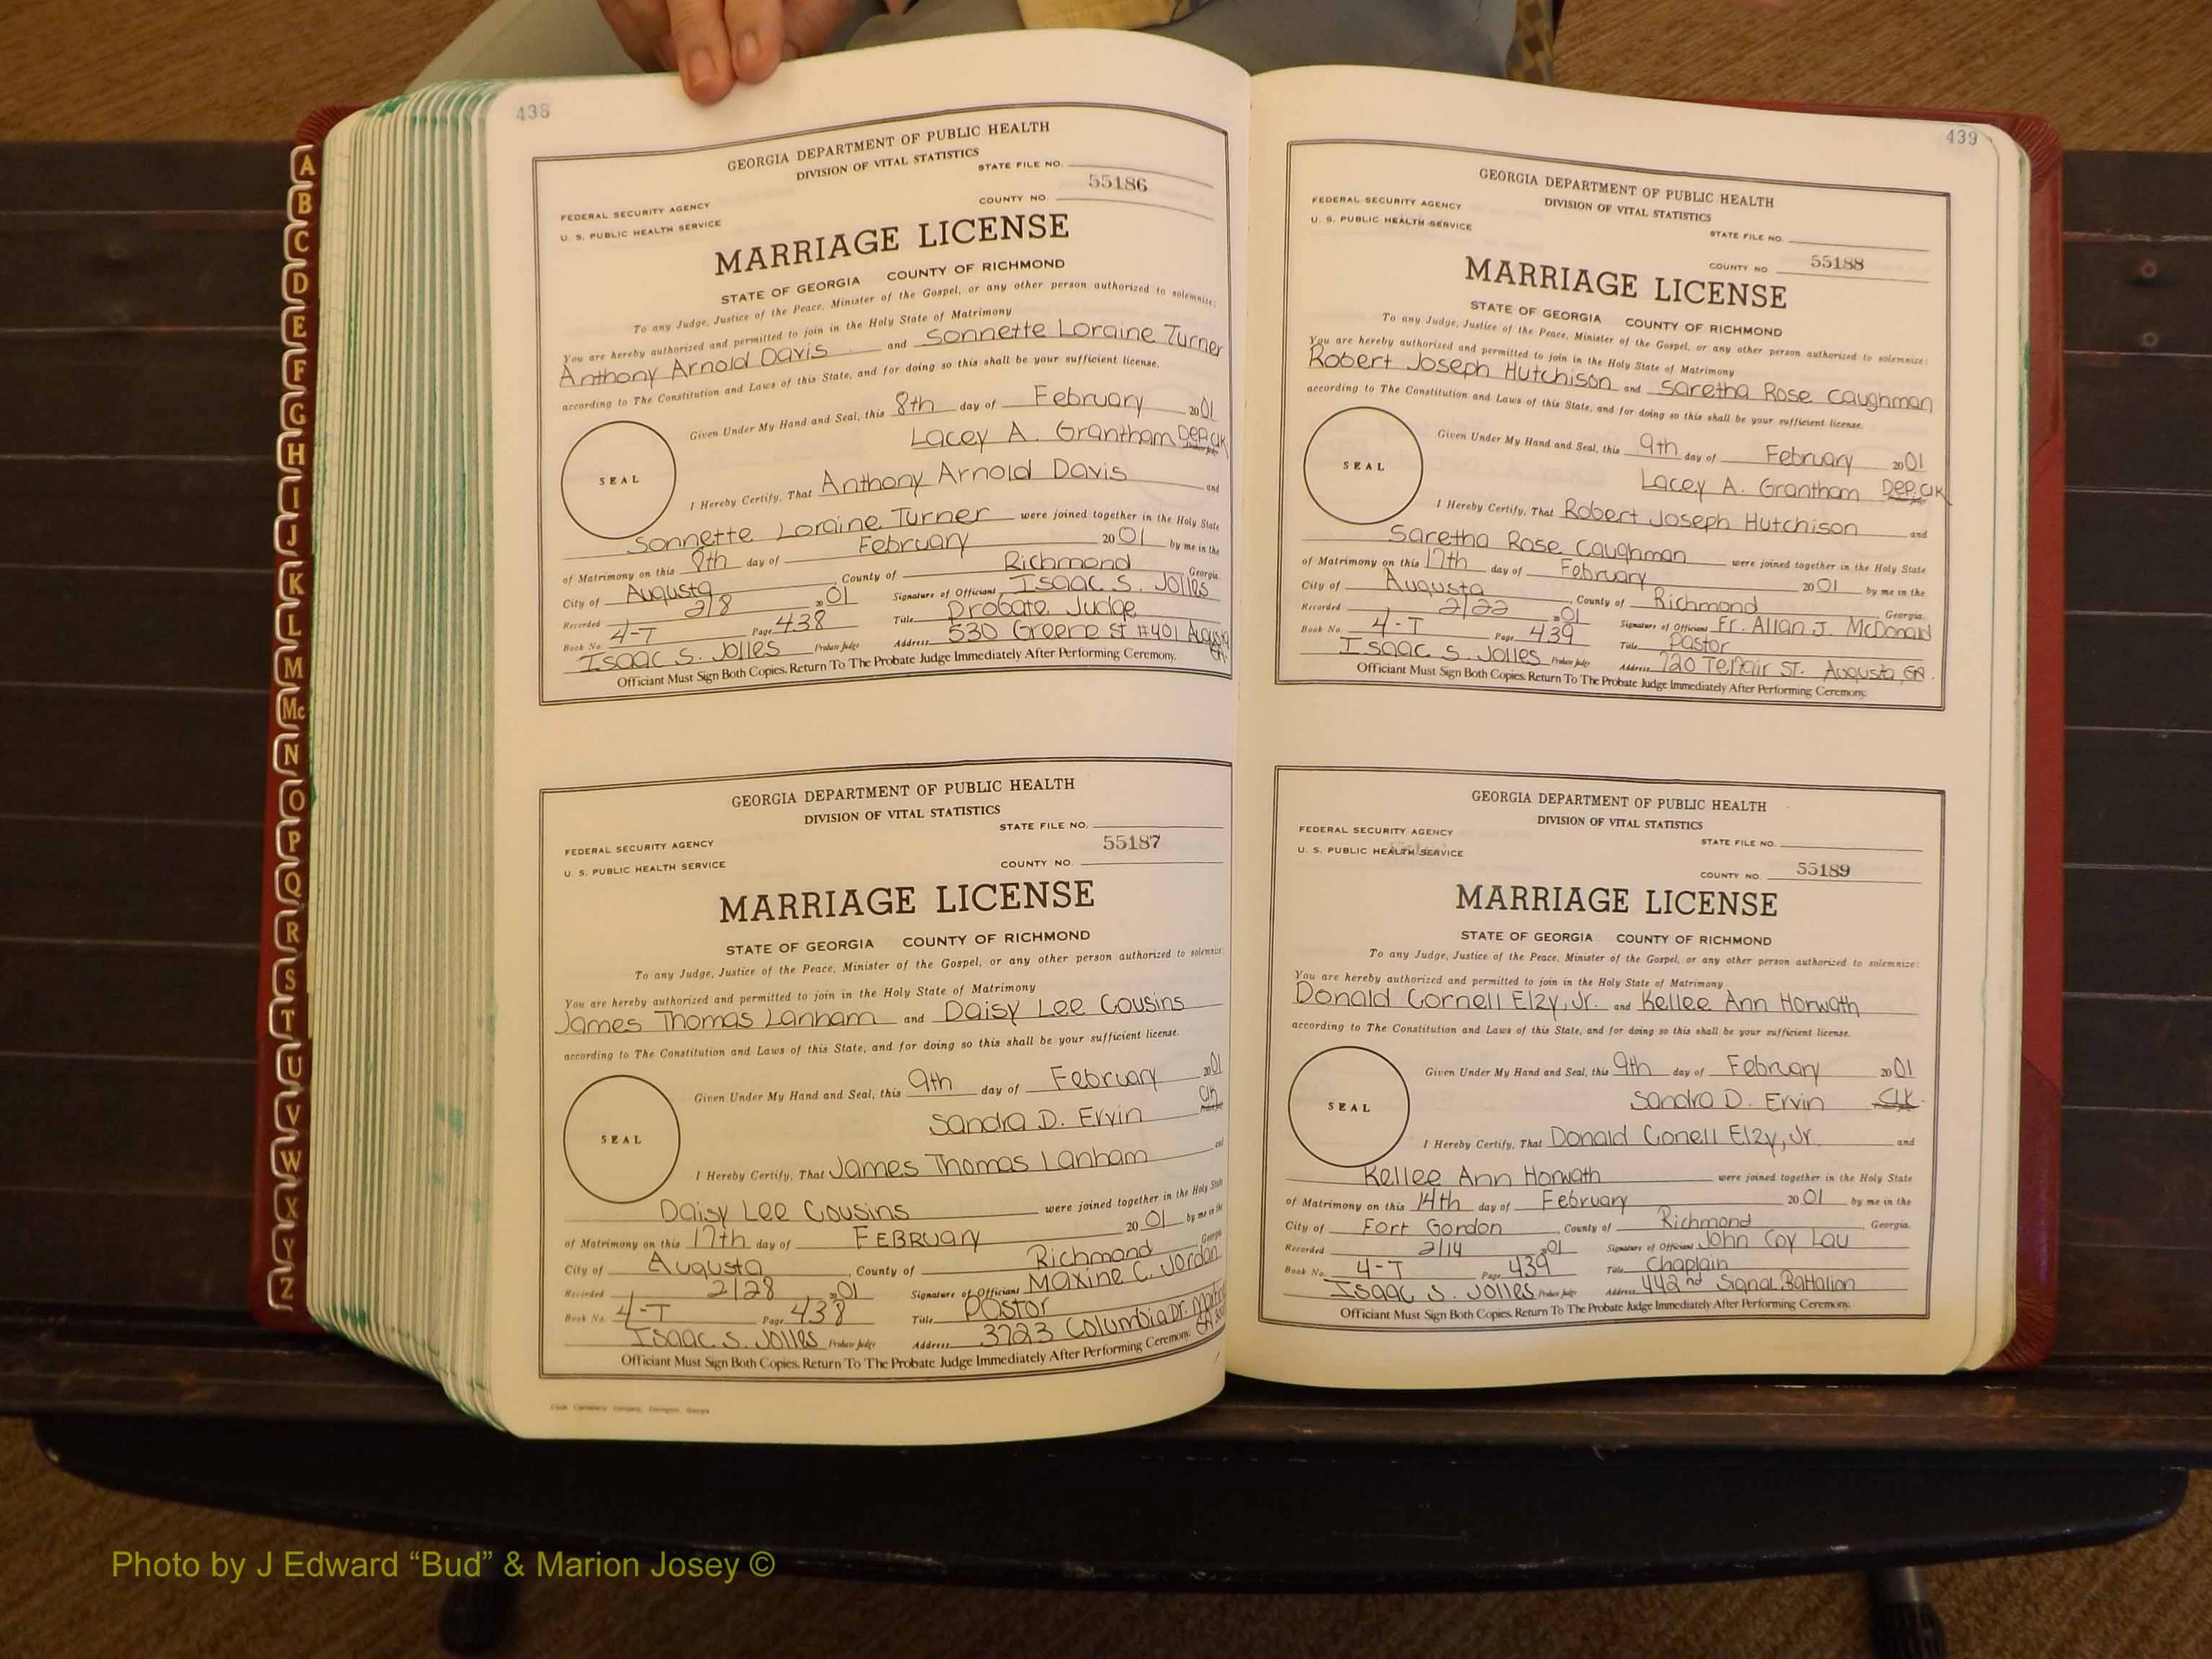 438
GEORGIA DEPARTMENT OF PUBLIC HEALTH
DIVISION OF VITAL STATISTICS
STATE FILE NO.
FEDERAL SECURITY AGENCY
U. S. PUBLIC HEALTH SERVICE
COUNTY NO. 55186
MARRIAGE LICENSE
STATE OF GEORGIA COUNTY OF RICHMOND
To any Judge, Justice of the Peace, Minister of the Gospel, or any other person authorized to solemnize:
You are hereby authorized and permitted to join in the Holy State of Matrimony
Anthony Arnold Davis and Sonnette Loraine Turner
according to The Constitution and Laws of this State, and for doing so this shall be your sufficient license.
Given Under My Hand and Seal, this 8th day of February 2001
Lacey A. Grantham Dep. Clk
SEAL
I Hereby Certify, That Anthony Arnold Davis and
Sonnette Loraine Turner were joined together in the Holy State
of Matrimony on this 8th day of February 2001 by me in the
City of Augusta, County of Richmond Georgia.
Recorded 2/8 2001 Signature of Officiant Isaac S. Jolles
Book No. 4-T Page 438 Title Probate Judge
Isaac S. Jolles Probate Judge Address 530 Greene St #401 Augusta GA.
Officiant Must Sign Both Copies. Return To The Probate Judge Immediately After Performing Ceremony.
GEORGIA DEPARTMENT OF PUBLIC HEALTH
DIVISION OF VITAL STATISTICS
STATE FILE NO.
FEDERAL SECURITY AGENCY
U. S. PUBLIC HEALTH SERVICE
COUNTY NO. 55187
MARRIAGE LICENSE
STATE OF GEORGIA COUNTY OF RICHMOND
To any Judge, Justice of the Peace, Minister of the Gospel, or any other person authorized to solemnize:
You are hereby authorized and permitted to join in the Holy State of Matrimony
James Thomas Lanham and Daisy Lee Cousins
according to The Constitution and Laws of this State, and for doing so this shall be your sufficient license.
Given Under My Hand and Seal, this 9th day of February 2001
Sandra D. Ervin Clk
SEAL
I Hereby Certify, That James Thomas Lanham and
Daisy Lee Cousins were joined together in the Holy State
of Matrimony on this 17th day of February 2001 by me in the
City of Augusta, County of Richmond Georgia
Recorded 2/28 2001 Signature of Officiant Maxine C. Jordan
Book No. 4-T Page 438 Title Pastor
Isaac S. Jolles Probate Judge Address 3723 Columbia Dr. GA
Officiant Must Sign Both Copies. Return To The Probate Judge Immediately After Performing Ceremony.
439
GEORGIA DEPARTMENT OF PUBLIC HEALTH
DIVISION OF VITAL STATISTICS
FEDERAL SECURITY AGENCY
U. S. PUBLIC HEALTH SERVICE
STATE FILE NO.
COUNTY NO 55188
MARRIAGE LICENSE
STATE OF GEORGIA COUNTY OF RICHMOND
To any Judge, Justice of the Peace, Minister of the Gospel, or any other person authorized to solemnize:
You are hereby authorized and permitted to join in the Holy State of Matrimony
Robert Joseph Hutchison and Saretha Rose Caughman
according to The Constitution and Laws of this State, and for doing so this shall be your sufficient license.
Given Under My Hand and Seal, this 9th day of February 2001
Lacey A. Grantham Dep. Clk
SEAL
I Hereby Certify, That Robert Joseph Hutchison and
Saretha Rose Caughman were joined together in the Holy State
of Matrimony on this 17th day of February 2001 by me in the
City of Augusta, County of Richmond Georgia.
Recorded 2/22 2001 Signature of Officiant Fr. Allan J. McDonald
Book No. 4-T Page 439 Title Pastor
Isaac S. Jolles Probate Judge Address 720 Telfair St. Augusta, GA.
Officiant Must Sign Both Copies. Return To The Probate Judge Immediately After Performing Ceremony.
GEORGIA DEPARTMENT OF PUBLIC HEALTH
DIVISION OF VITAL STATISTICS
FEDERAL SECURITY AGENCY
U. S. PUBLIC HEALTH SERVICE
STATE FILE NO.
COUNTY NO. 55189
MARRIAGE LICENSE
STATE OF GEORGIA COUNTY OF RICHMOND
To any Judge, Justice of the Peace, Minister of the Gospel, or any other person authorized to solemnize:
You are hereby authorized and permitted to join in the Holy State of Matrimony
Donald Cornell Elzy, Jr. and Kellee Ann Horwath
according to The Constitution and Laws of this State, and for doing so this shall be your sufficient license.
Given Under My Hand and Seal, this 9th day of February 2001
Sandra D. Ervin Clk.
SEAL
I Hereby Certify, That Donald Conell Elzy, Jr. and
Kellee Ann Horwath were joined together in the Holy State
of Matrimony on this 14th day of February 2001 by me in the
City of Fort Gordon, County of Richmond, Georgia.
Recorded 2/14 2001 Signature of Officiant John Coy Lau
Book No. 4-T Page 439 Title Chaplain
Isaac S. Jolles Probate Judge Address 442nd Signal Battalion
Officiant Must Sign Both Copies. Return To The Probate Judge Immediately After Performing Ceremony.
A
B
C
D
E
F
G
H
I
J
K
L
M
Mc
N
O
P
Q
R
S
T
U
V
W
X
Y
Z
Photo by J Edward “Bud” & Marion Josey ©